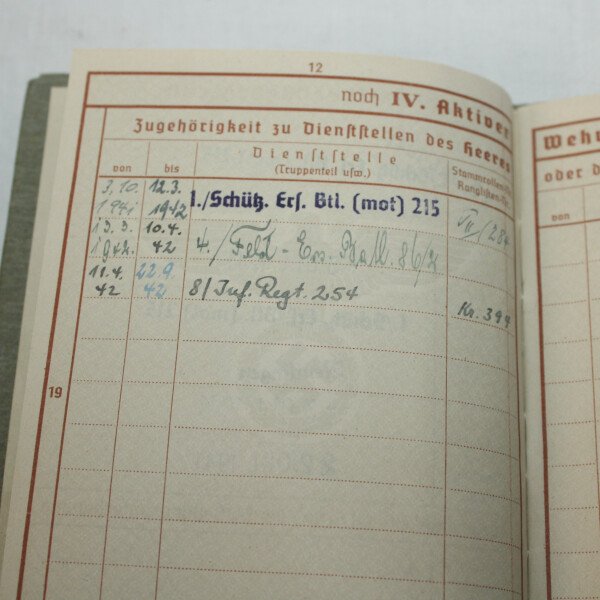 12
noch IV. Aktiver
Wehr
Zugehörigkeit zu Dienststellen des Heeres
oder d
von
bis
Dienststelle
(Truppenteil usw.)
Stammrollen-
Ranglisten-
von
3.10. 1941
12.3. 1942
1./Schütz. Ers. Btl. (mot) 215
IV/284
13.3. 1942.
10.4. 42
4./Feld-Ers. Batl. 86/
11.4. 42
22.9. 42
8/Inf. Regt. 254
Kr. 394
19